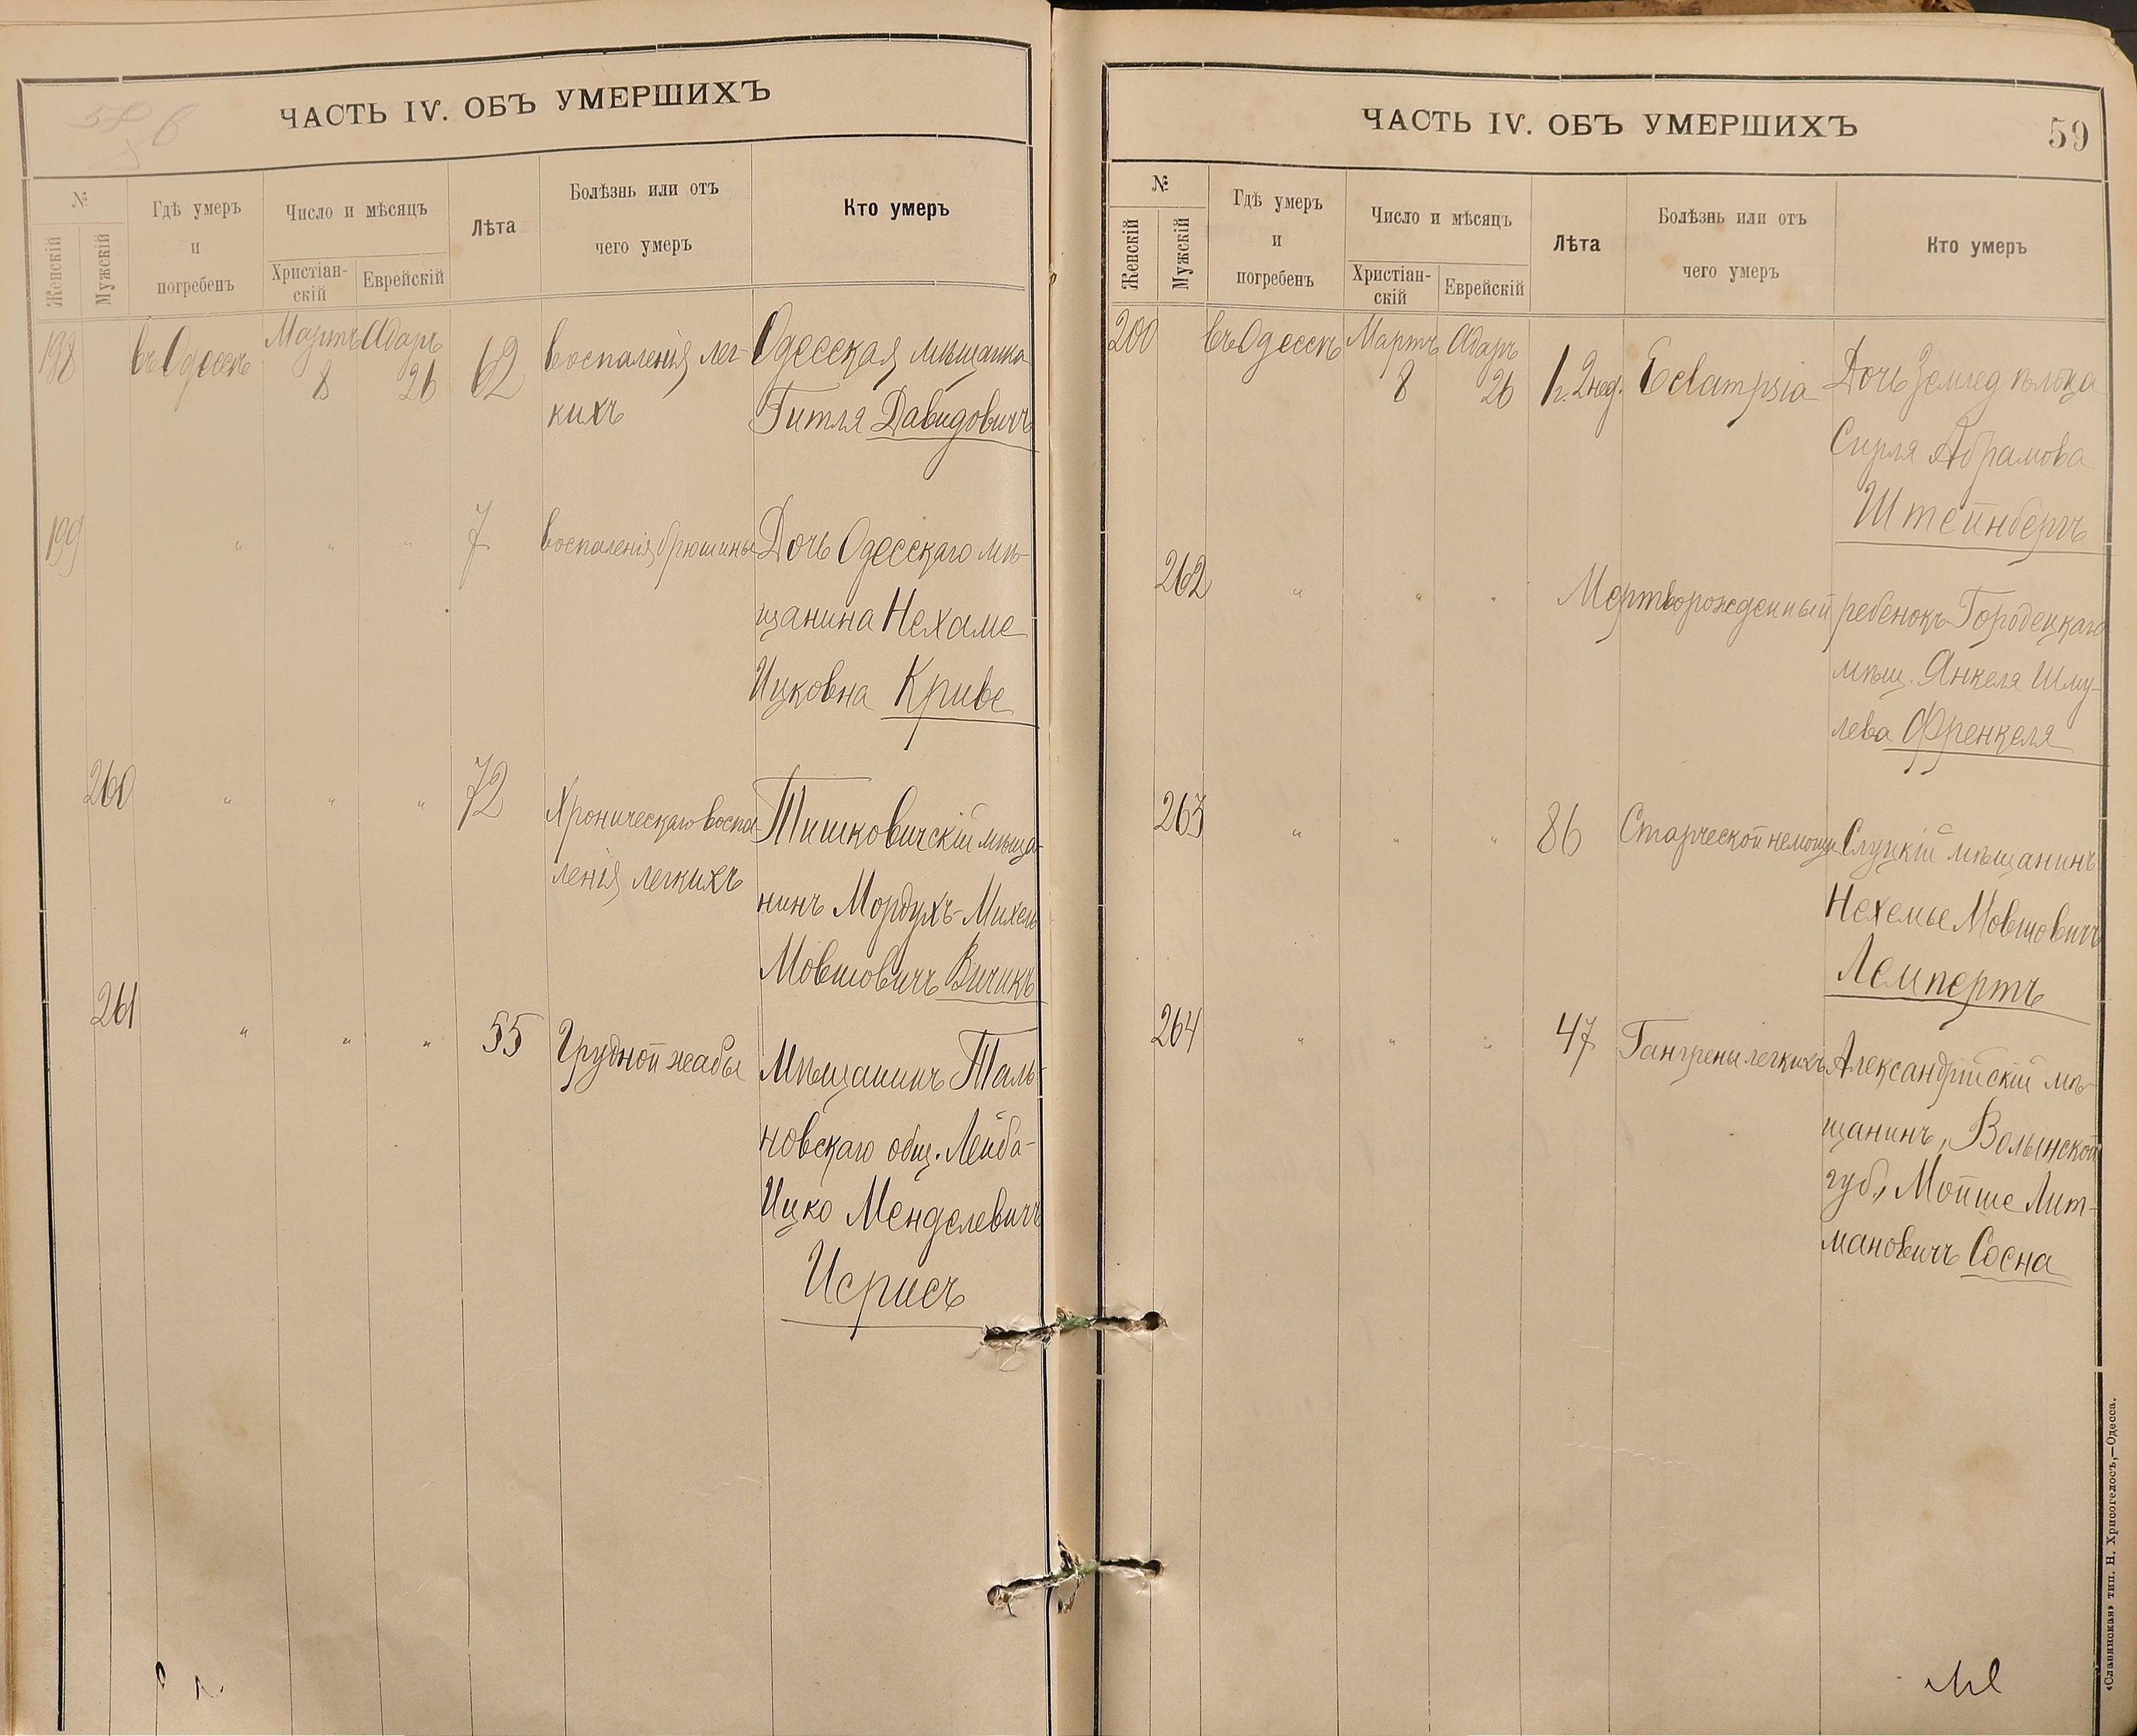 ЧАСТЬ IV. ОБЪ УМЕРШИХЪ
№
Женскій
Мужскій
Гдѣ умеръ
и
погребенъ
Число и мѣсяцъ
Христіан-
скій
Еврейскій
Лѣта
Болѣзнь или отъ
чего умеръ
Кто умеръ
198 въ Одессѣ Мартъ 8 Адаръ 26 62 воспаленія лег-
кихъ
Одесская мѣщанка
Гитля Давидовичъ
199 " " " 7 воспаленія брюшины
Дочь Одесскаго мѣ-
щанина Нехаме
Ицковна Криве
260 " " " 72 Хроническаго воспа-
ленія легкихъ
Тишковичскій мѣща-
нинъ Мордухъ-Михель
Мовшовичъ Вичикъ
261 " " " 55 Грудной жабы
Мѣщанинъ Таль-
новскаго общ. Лейба-
Ицко Менделевичъ
Исрисъ
ЧАСТЬ IV. ОБЪ УМЕРШИХЪ
59
№
Женскій
Мужскій
Гдѣ умеръ
и
погребенъ
Число и мѣсяцъ
Христіан-
скій
Еврейскій
Лѣта
Болѣзнь или отъ
чего умеръ
Кто умеръ
200 въ Одессѣ Мартъ 8 Адаръ 26 2 нед. Eclampsia
Дочь Земледѣльца
Сирля Абрамова
Штейнбергъ
262 " " " Мертворожденный ребенокъ Городецкаго
мѣщ. Янкеля Шму-
лева Френкеля
263 " " " 86 Старческой немощи
Слуцкій мѣщанинъ
Нехемье Мовшовичъ
Лемпертъ
264 " " " 47 Гангрены легкихъ
Александрійскій мѣ-
щанинъ, Волынской
губ., Мойше Лит-
мановичъ Сосна
«Славянская» тип. Н. Хрисогелосъ,—Одесса.